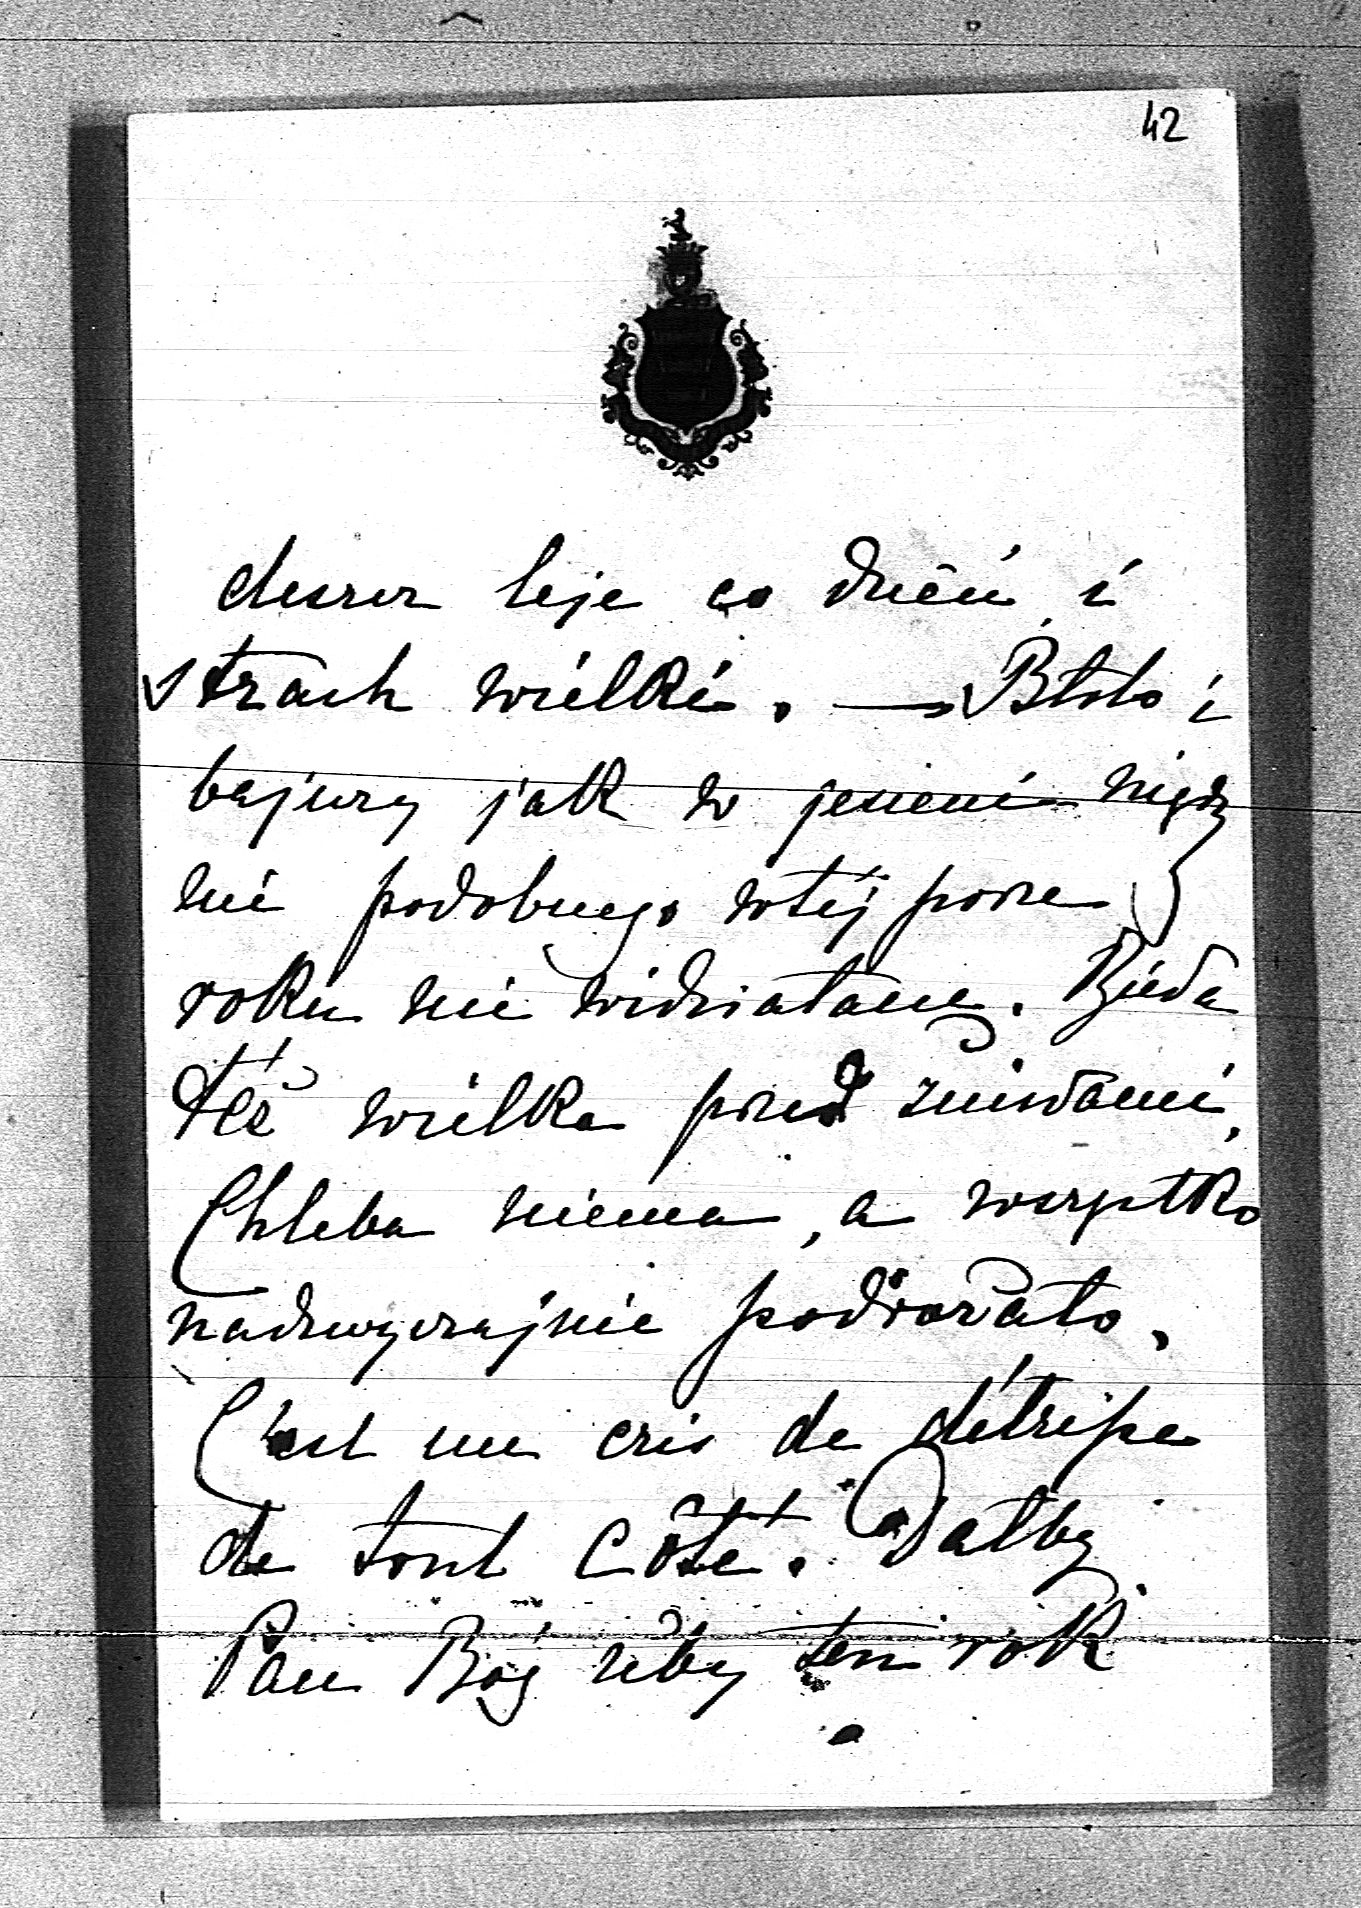 42
deszcz leje co dzień i
strach wielki. — Błoto i
bajury jak w jesieni nigdy
nic podobnego w téj porze
roku nie widziałam. Bieda
téż wielka przed żniwami,
Chleba niema, a wszystko
nadzwyczajnie podrożało.
C'est un cris de détresse
de tout côté. Dałby
Pan Bóg żeby ten rok